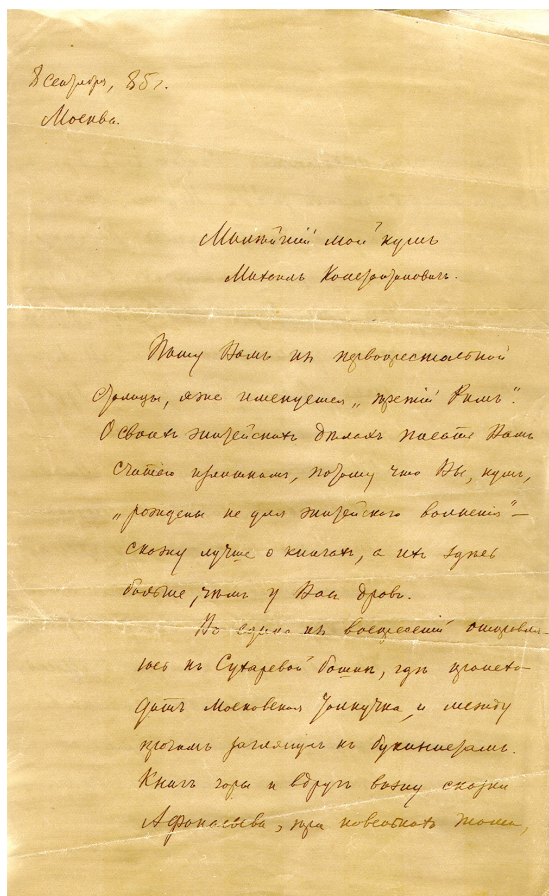 8 сентября, 85 г.
Москва.
Милейшій мой кумъ
Михаилъ Константиновичъ.
Пишу Вамъ изъ первопрестольной
столицы, яже именуемая „третій Римъ".
О своихъ житейскихъ дѣлахъ писать Вамъ
считаю излишнимъ, потому что Вы, кумъ,
„рождены не для житейскаго волненія" —
скажу лучше о книгахъ, а ихъ здѣсь
больше, чѣмъ у Васъ дровъ.
изъ воскресеній отправля-
юсь къ Сухаревой башнѣ, гдѣ происхо-
дитъ Московская толкучка, и между
прочимъ заглянулъ къ букинистамъ.
Книгъ горы и вдругъ вижу сказки
Афанасьева, три тома,